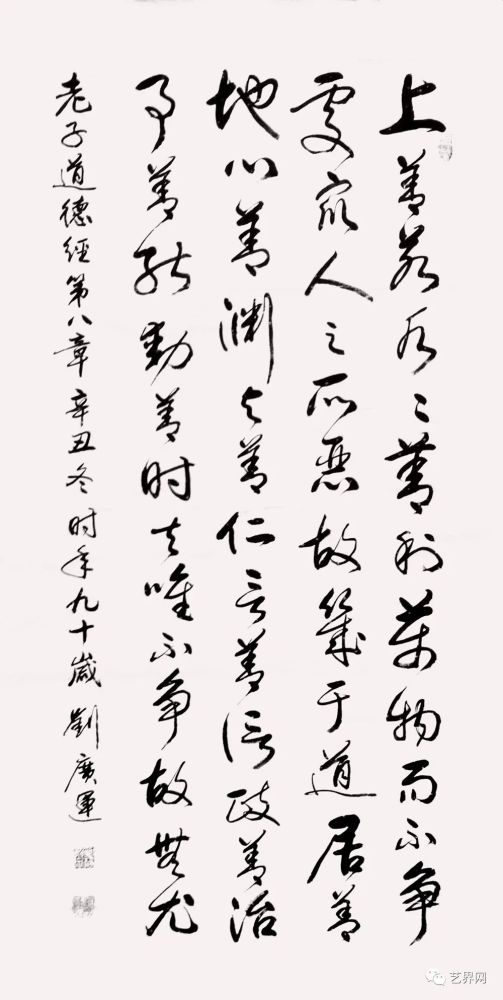 上善若水水善利萬物而不争
處衆人之所惡故幾于道居善
地心善渊與善仁言善信政善治
事善能動善时夫唯不争故無尤
老子道德經第八章辛丑冬时年九十歲劉廣運
艺界网